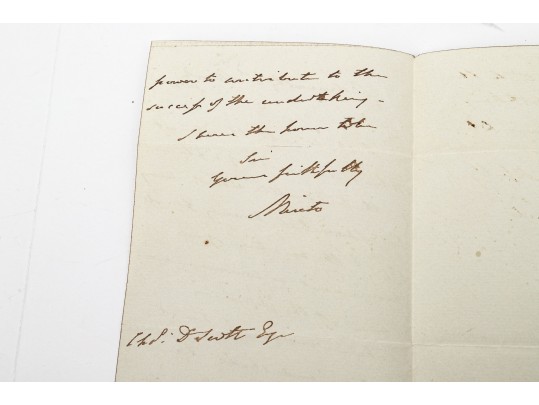 power to contribute to the
success of the undertaking -
I have the honor to be
Sir
Yours faithfully
Minto
Chs. D Scott Esqr